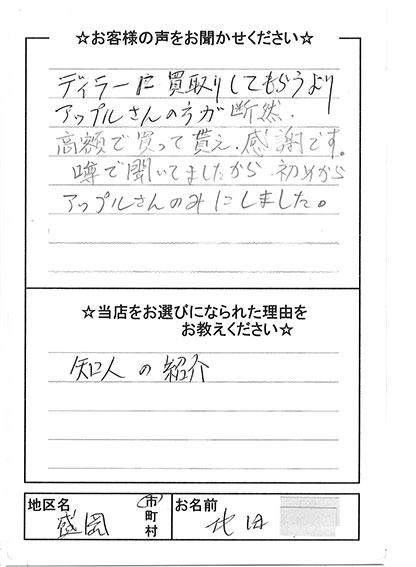 ☆お客様の声をお聞かせください☆
ディラーに買取りしてもらうより
アップルさんの方が断然、
高額で買って貰え、感謝です。
噂で聞いてましたから、初めから
アップルさんのみにしました。
☆当店をお選びになられた理由を
お教えください☆
知人の紹介
地区名
盛岡
市
町
村
お名前